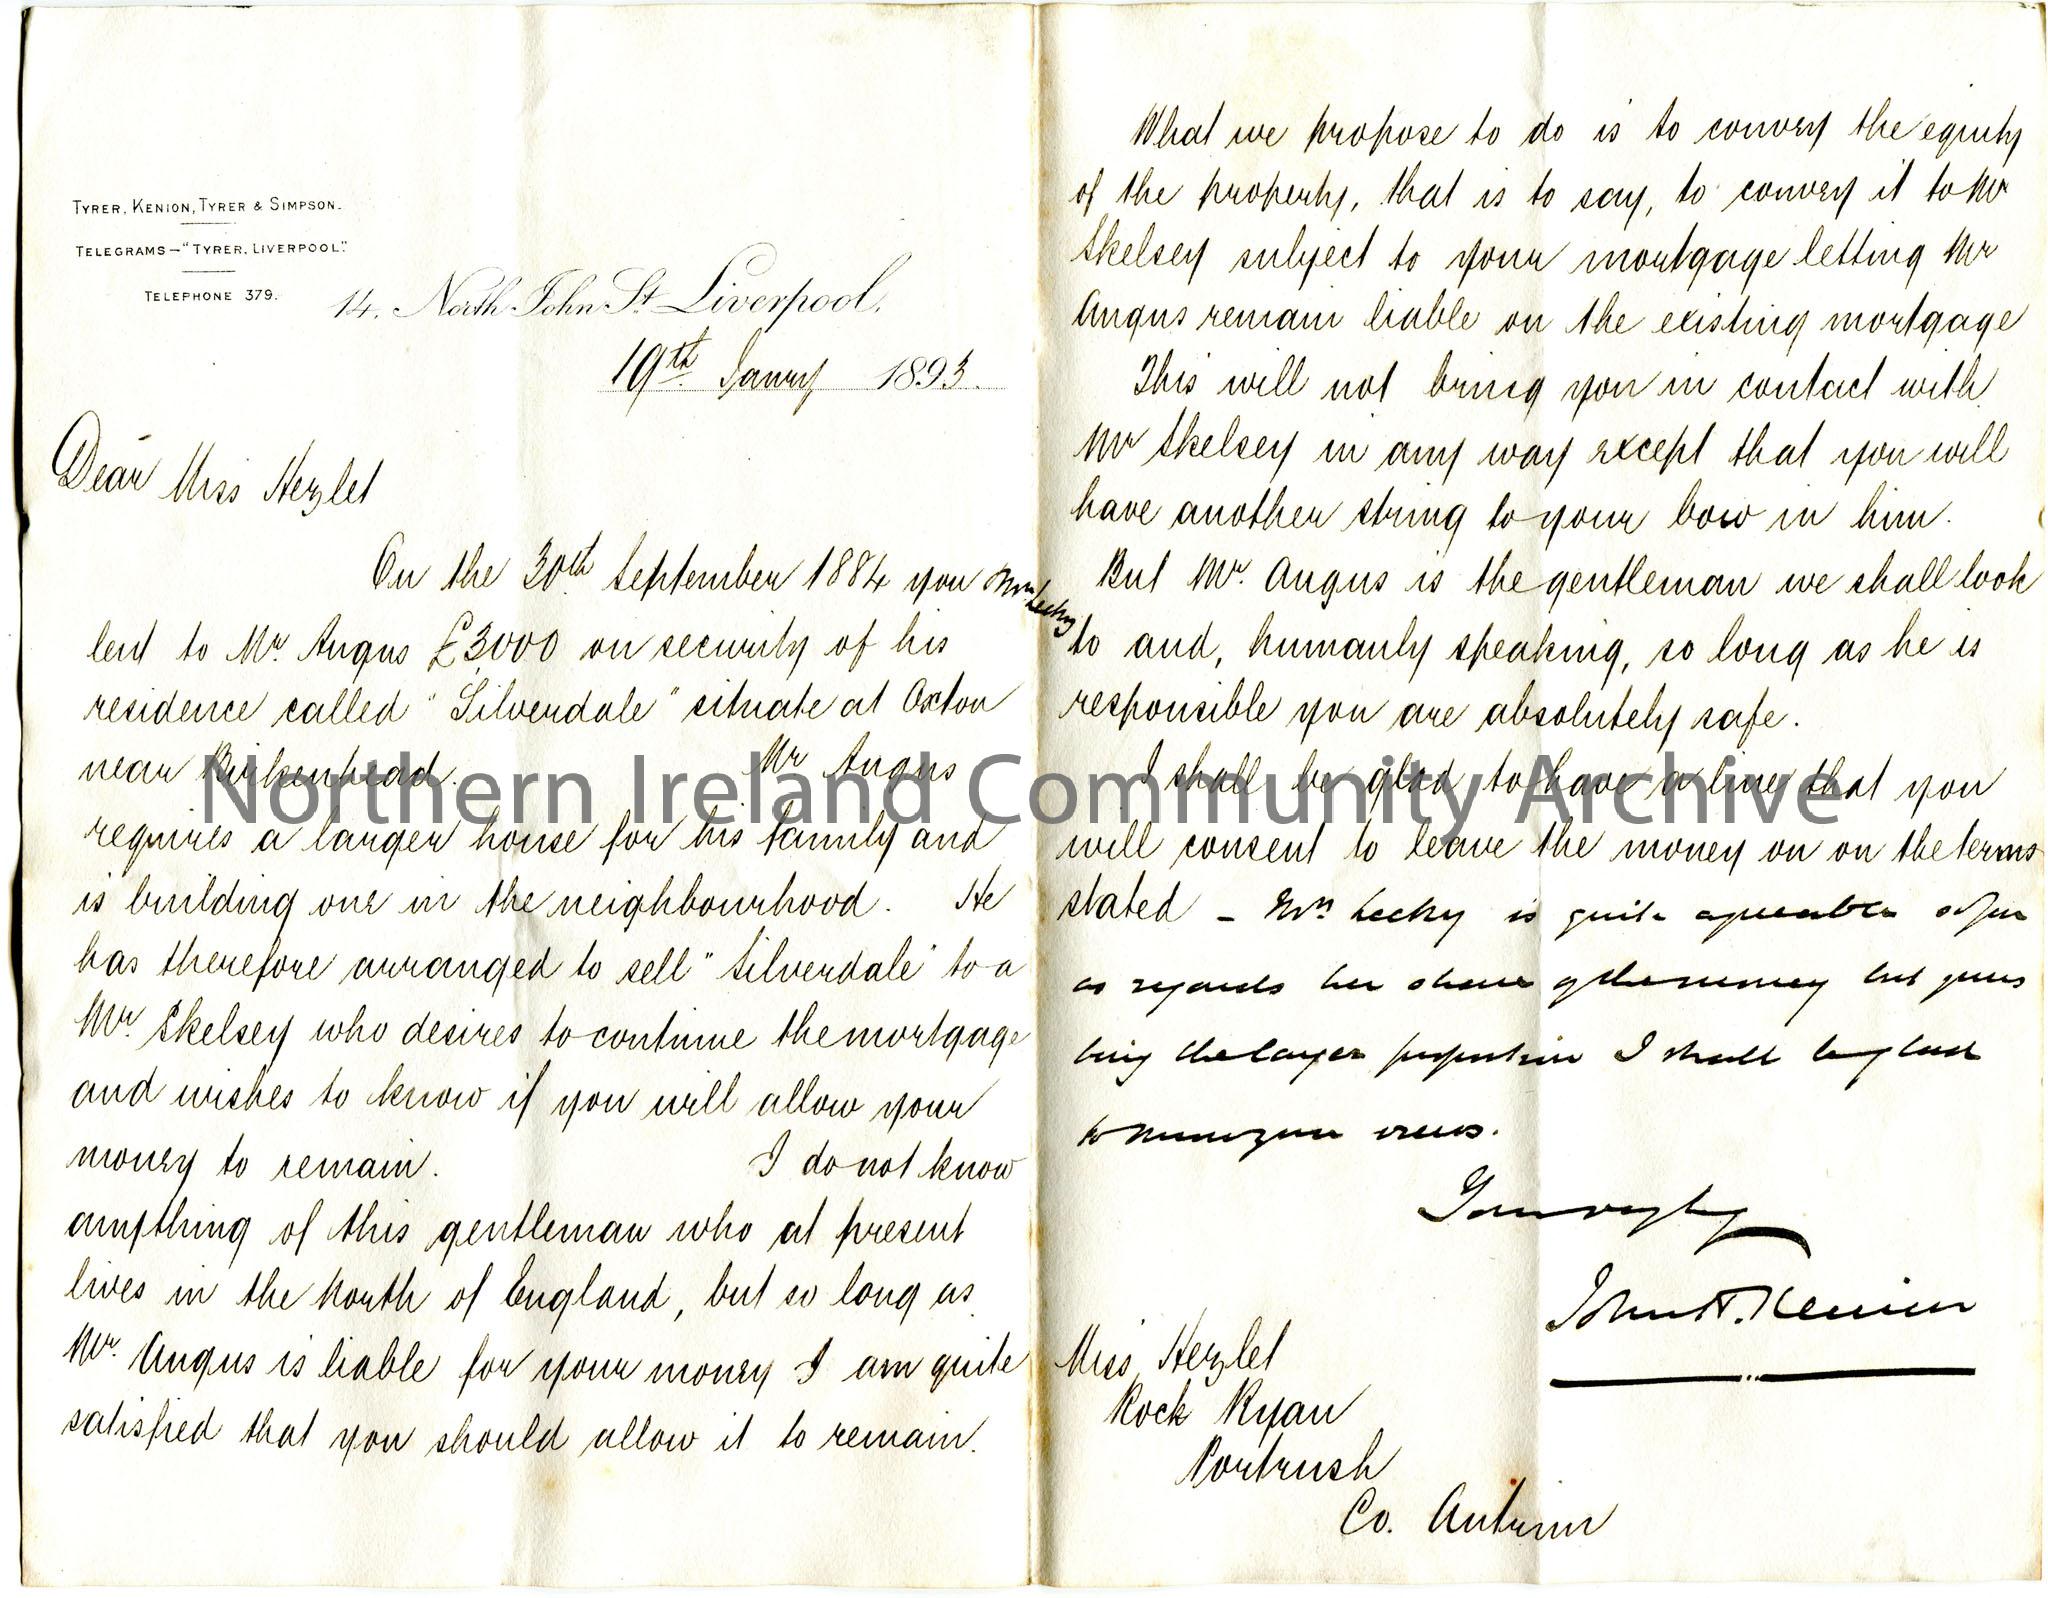 TYRER, KENION, TYRER & SIMPSON.
TELEGRAMS—"TYRER, LIVERPOOL".
TELEPHONE 379.
14, North John St. Liverpool,
19th Janry 1893.
Dear Miss Hezlet
On the 30th September 1884 you & Mrs Lecky
lent to Mr. Angus £3000 on security of his
residence called "Silverdale" situate at Oxton
near Birkenhead. Mr Angus
requires a larger house for his family and
is building one in the neighbourhood. He
has therefore arranged to sell "Silverdale" to a
Mr. Skelsey who desires to continue the mortgage
and wishes to know if you will allow your
money to remain. I do not know
anything of this gentleman who at present
lives in the North of England, but so long as
Mr. Angus is liable for your money I am quite
satisfied that you should allow it to remain.
What we propose to do is to convey the equity
of the property, that is to say, to convey it to Mr
Skelsey subject to your mortgage letting Mr
Angus remain liable on the existing mortgage
This will not bring you in contact with
Mr Skelsey in any way except that you will
have another string to your bow in him.
But Mr. Angus is the gentleman we shall look
to and, humanly speaking, so long as he is
responsible you are absolutely safe.
I shall be glad to have a line that you
will consent to leave the money on on the terms
stated – Mrs Lecky is quite agreeable so far
as regards her share of the money but yours
being the larger proportion I shall be glad
to know your views.
Yours very truly
John H. Kenion
Miss Hezlet
Rock Ryan
Portrush
Co. Antrim
Northern Ireland Community Archive